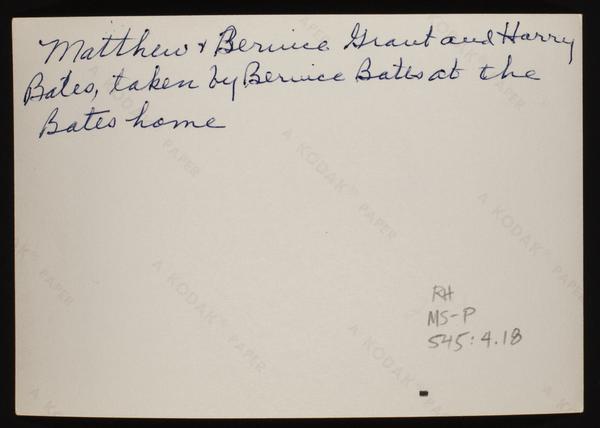 Matthew & Bernice Grant and Harry
Bates, taken by Bernice Batts at the
Bates home
A KODAK® PAPER
A KODAK® PAPER
A KODAK® PAPER
A KODAK® PAPER
A KODAK® PAPER
A KODAK® PAPER
RH
MS-P
545:4.18